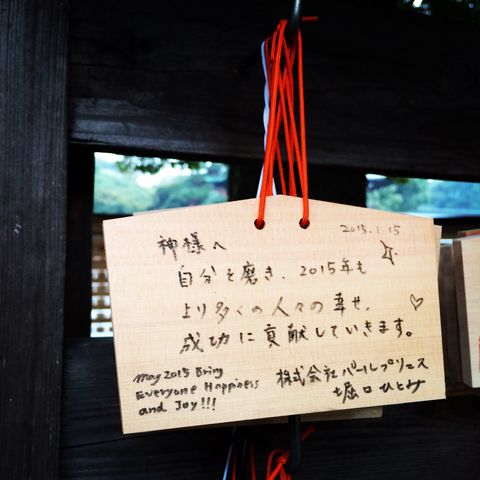 2015.1.15
神様へ
自分を磨き、2015年も
より多くの人々の幸せ、
成功に貢献していきます。
May 2015 Bring
Everyone Happiness
and Joy!!!
株式会社パールプリエス
堀口ひとみ